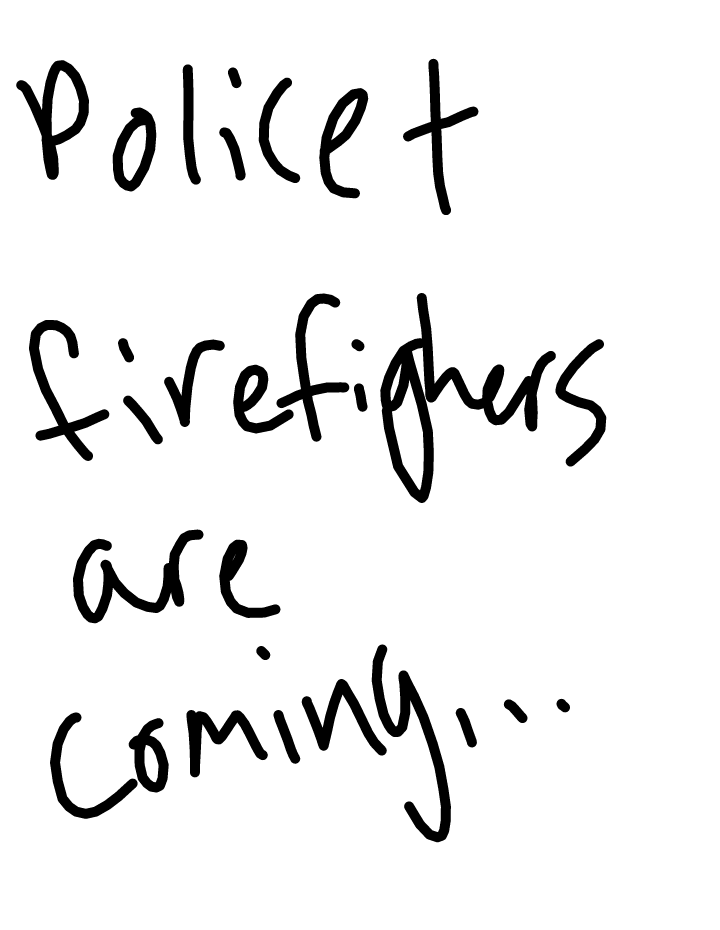 Police +
firefighers
are
coming...